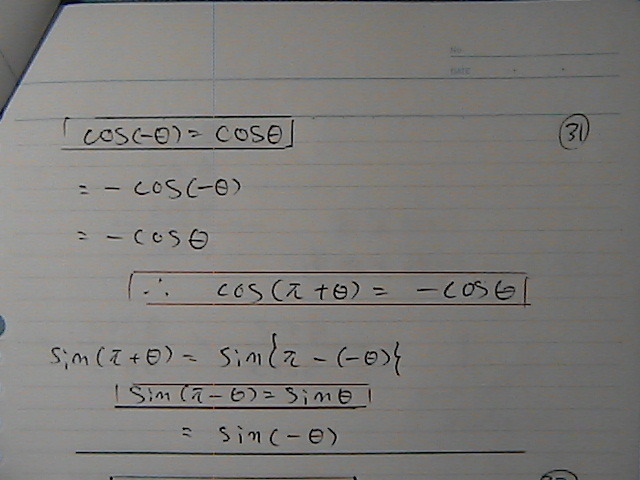 No
DATE
cos(-θ) = cosθ
31
= - cos(-θ)
= - cosθ
∴ cos(π+θ) = -cosθ
sin(π+θ) = sin{π-(-θ)}
sin(π-θ) = sinθ
= sin(-θ)